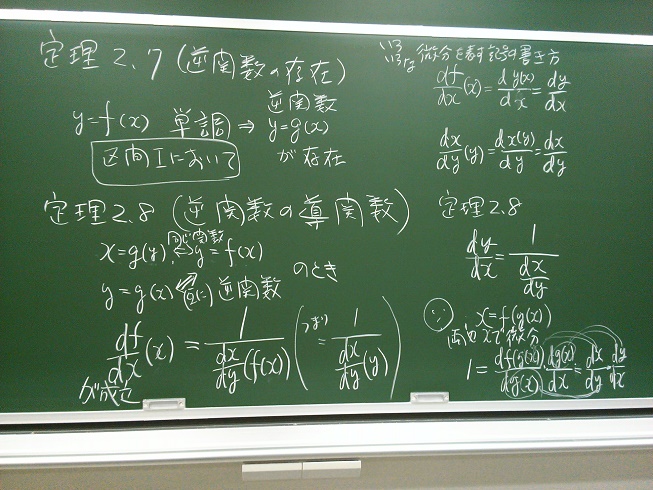 定理 2.7 (逆関数の存在)
y=f(x) 単調 ⇒ 逆関数 y=g(x) が存在
区間Iにおいて
定理2.8 (逆関数の導関数)
x=g(y) ⇔ y=f(x)
同じ関数
y=g(x) 逆関数
のとき
df/dx (x) = 1/(dx/dy (f(x))) (つまり = 1/(dx/dy (y)))
が成立
いろいろな 微分を表す記号の書き方
df/dx (x) = dy(x)/dx = dy/dx
dx/dy (y) = dx(y)/dy = dx/dy
定理2.8
dy/dx = 1/(dx/dy)
∵ x=f(g(x))
両辺xで微分
1 = df(g(x))/dg(x) · dg(x)/dx = dx/dy · dy/dx